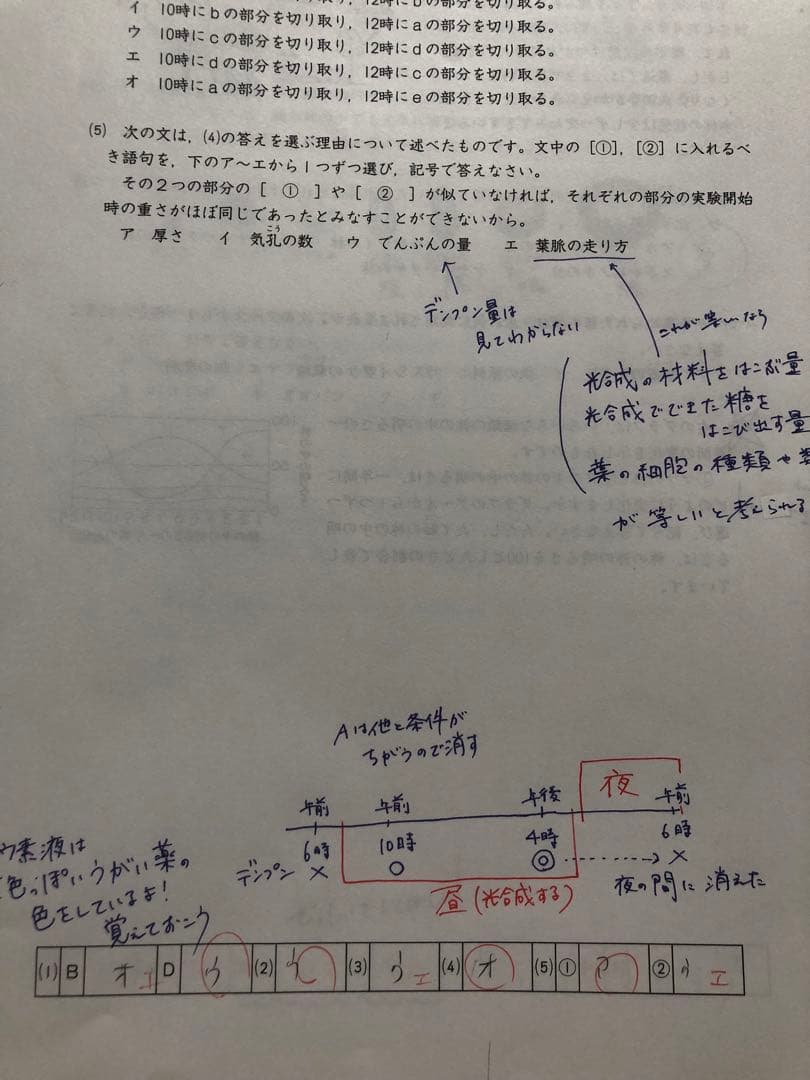 イ 10時にbの部分を切り取り，12時にaの部分を切り取る。
ウ 10時にcの部分を切り取り，12時にdの部分を切り取る。
エ 10時にdの部分を切り取り，12時にcの部分を切り取る。
オ 10時にaの部分を切り取り，12時にeの部分を切り取る。
(5) 次の文は，(4)の答えを選ぶ理由について述べたものです。文中の［①］，［②］に入れるべ
き語句を，下のア～エから1つずつ選び，記号で答えなさい。
その2つの部分の［ ① ］や［ ② ］が似ていなければ，それぞれの部分の実験開始
時の重さがほぼ同じであったとみなすことができないから。
こう
ア 厚さ イ 気孔の数 ウ でんぷんの量 エ 葉脈の走り方
デンプン量は
見てわからない
これが等しいなら
光合成の材料をはこぶ量
光合成でできた糖を
はこび出す量
葉の細胞の種類や
が等しいと考えられる
Aは他と条件が
ちがうので消す
夜
午前 午前 午後 午前
6時 10時 4時 6時
デンプン × ○ ◎ ×
昼(光合成する)
夜の間に消えた
ウ素液は
色っぽいうがい薬の
色をしているよ!
覚えておこう
(1) B オ エ D ウ (2) ウ (3) ウ エ (4) オ (5) ① ア ② ウ エ